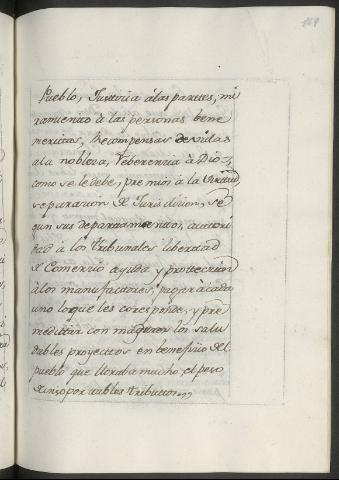 169
Pueblo, Justicia á las partes, mi
ramiento à las personas bene
meritas, Recompensas devidas
a la nobleza, Reberencia à Dios,
como se le debe, premios à la Virtud,
separasion de Jurisdision, se
gun sus departamentos, autori
dad à los tribunales libertad
de Comersio ayuda y proteccion
à los manufactores, pagar à cada
uno lo que les coresponde, y pre
meditar con madures los salu
dables proyectos en benefisio del
pueblo que lloraba mucho el peso
de insoportables tributos